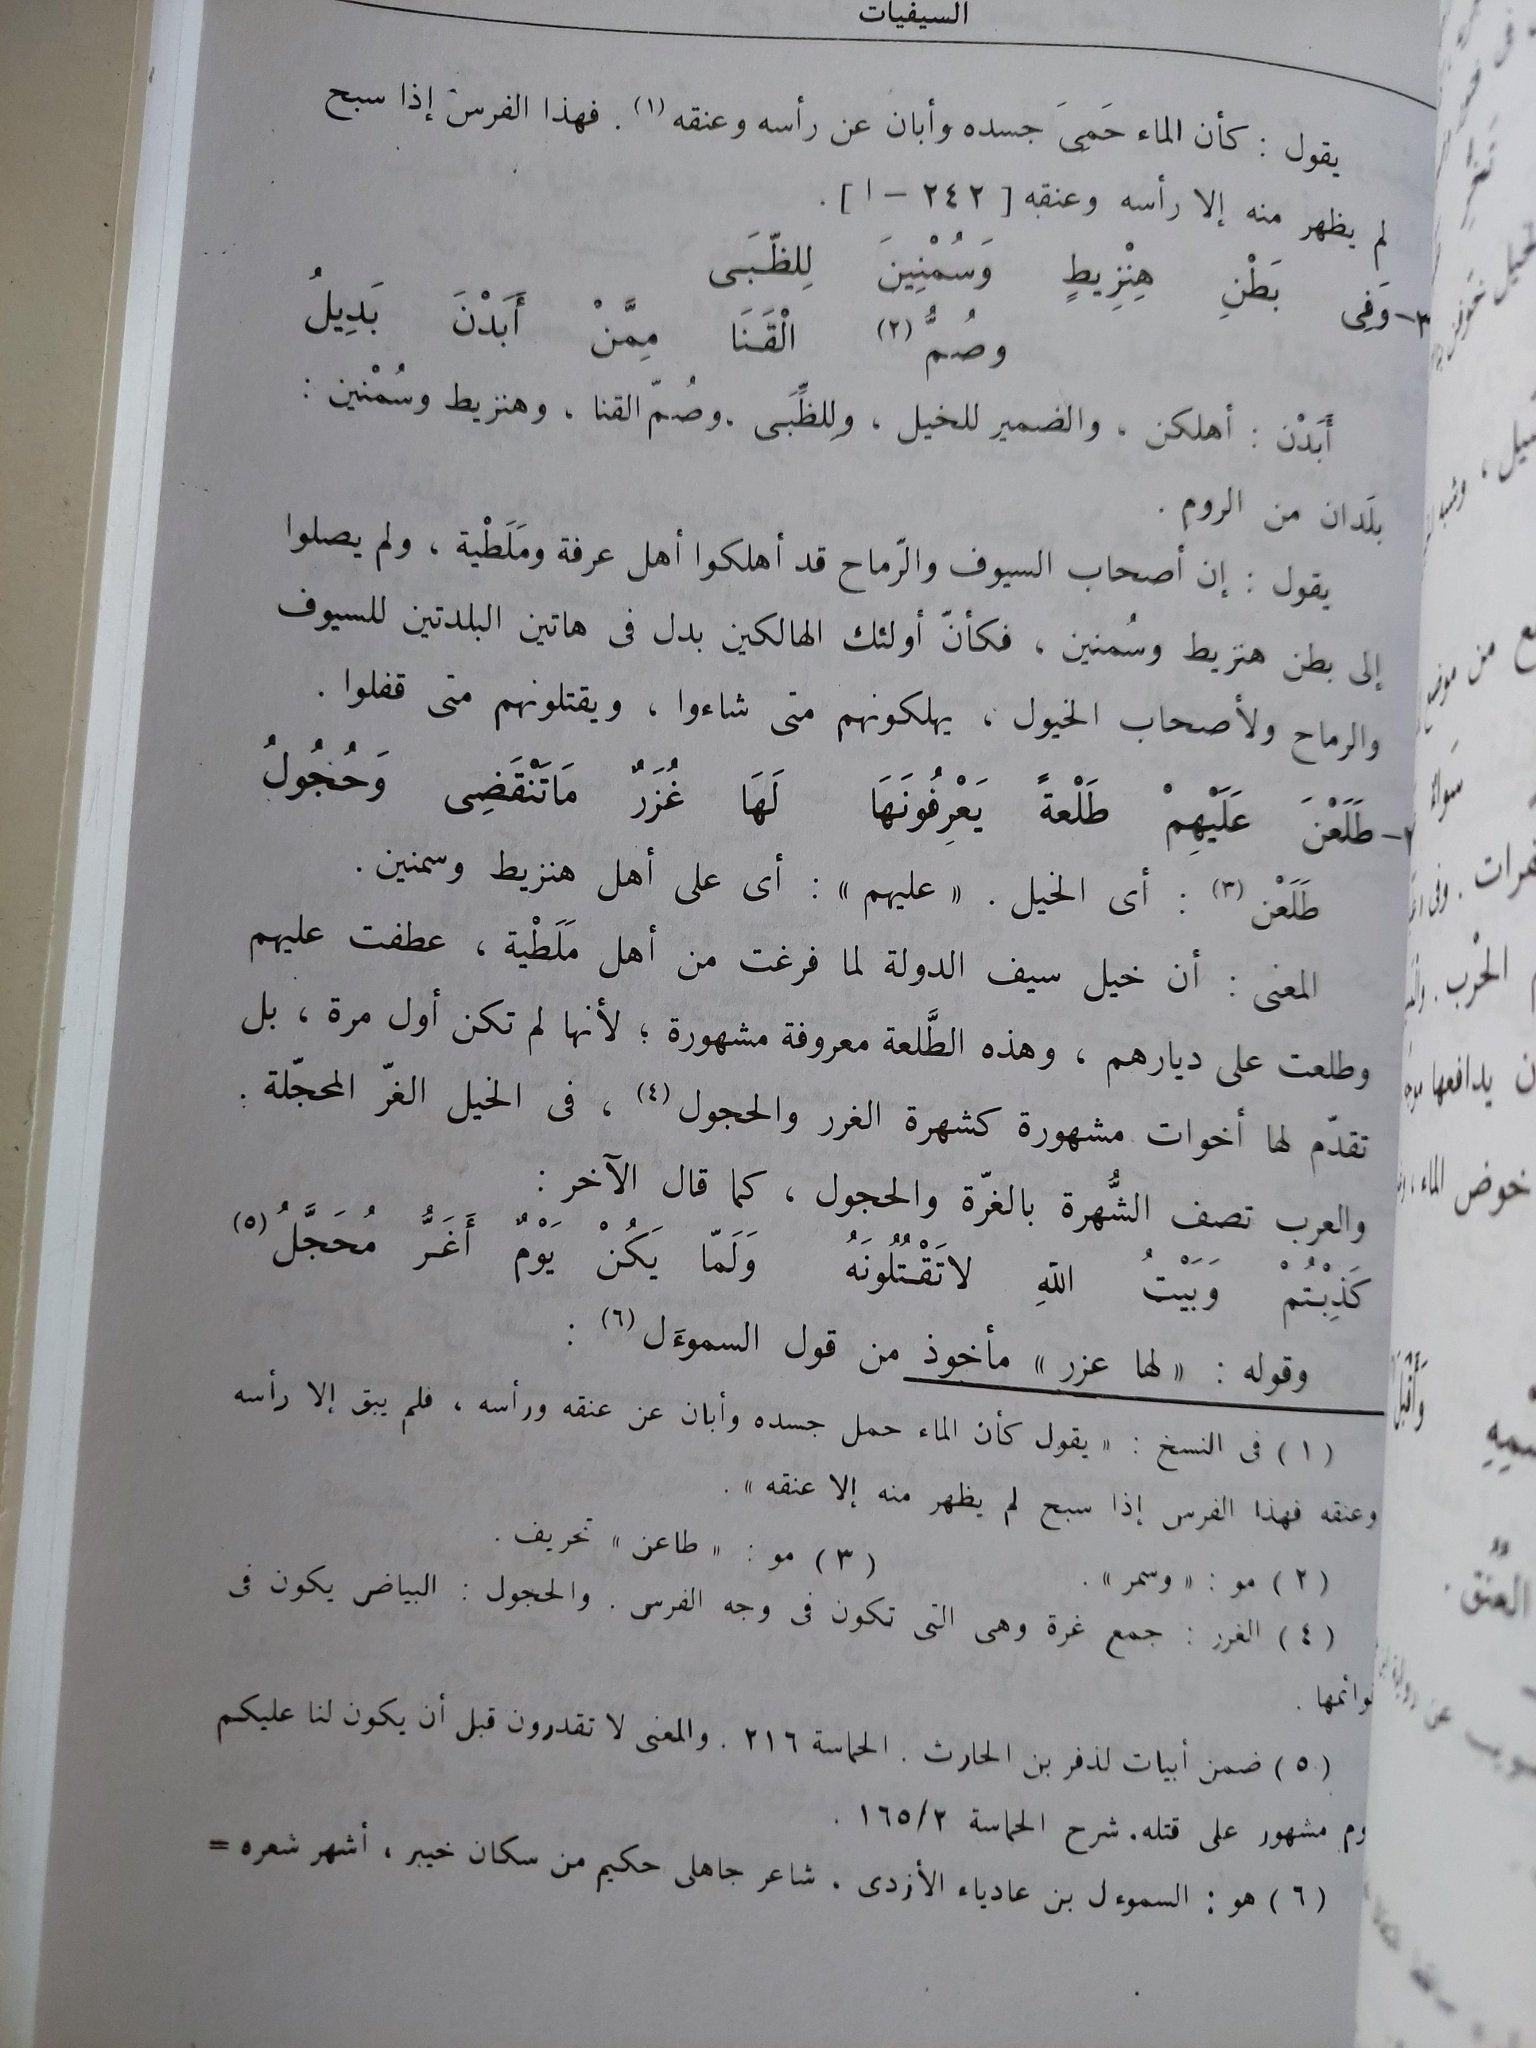 السيفيات
يقول : كأن الماء حَمِىَ جسده وأبان عن رأسه وعنقه (١) . فهذا الفرس إذا سبح
لم يظهر منه إلا رأسه وعنقه [ ٢٤٢ – ا ] .
٣– وَفِى بَطْنِ هِنْزِيطٍ وَسُمْنِينَ لِلظّبَى
وصُمُّ (٢) الْقَنَا مِمَّنْ أَبَدْنَ بَدِيلُ
أَبَدْن : أهلكن ، والضمير للخيل ، ولِلظِّبَى .وصُمّ القنا ، وهنزيط وسُمْنين :
بلَدان من الروم .
يقول : إن أصحاب السيوف والرّماح قد أهلكوا أهل عرفة ومَلَطْية ، ولم يصلوا
إلى بطن هنزيط وسُمنين ، فكأنّ أولئك الهالكين بدل فى هاتين البلدتين للسيوف
والرماح ولأصحاب الخيول ، يهلكونهم متى شاءوا ، ويقتلونهم متى قفلوا .
طَلَعْنَ عَلَيْهِمْ طَلْعةً يَعْرِفُونَهَا لَهَا غُرَرٌ مَاتَنْقَضِى وَحُجُولُ
طَلَعْن (٣) : أى الخيل . « عليهم » : أى على أهل هنزيط وسمنين .
المعنى : أن خيل سيف الدولة لما فرغت من أهل مَلَطْية ، عطفت عليهم
وطلعت على ديارهم ، وهذه الطَّلعة معروفة مشهورة ؛ لأنها لم تكن أول مرة ، بل
تقدّم لها أخوات مشهورة كشهرة الغرر والحجول (٤) ، فى الخيل الغرّ المحجّلة .
والعرب تصف الشُّهرة بالغرّة والحجول ، كما قال الآخر :
كَذِبْتُمْ وَبَيْتُ اللّهِ لاتَقْتُلُونَهُ وَلَمّا يَكُنْ يَوْمٌ أَغَرُّ مُحَجَّلُ (٥)
وقوله : « لها عزر » مأخوذ من قول السموءَل (٦) :
( ١ ) فى النسخ : « يقول كأن الماء حمل جسده وأبان عن عنقه ورأسه ، فلم يبق إلا رأسه
وعنقه فهذا الفرس إذا سبح لم يظهر منه إلا عنقه » .
( ٢ ) مو : « وسمر » . ( ٣ ) مو : « طاعن » تحريف .
( ٤ ) الغرر : جمع غرة وهى التى تكون فى وجه الفرس . والحجول : البياض يكون فى
وائمها .
( ٥ ) ضمن أبيات لذفر بن الحارث . الحماسة ٢١٦ . والمعنى لا تقدرون قبل أن يكون لنا عليكم
وم مشهور على قتله. شرح الحماسة ١٦٥/٢ .
( ٦ ) هو : السموءل بن عادياء الأزدى . شاعر جاهلى حكيم من سكان خيبر ، أشهر شعره =